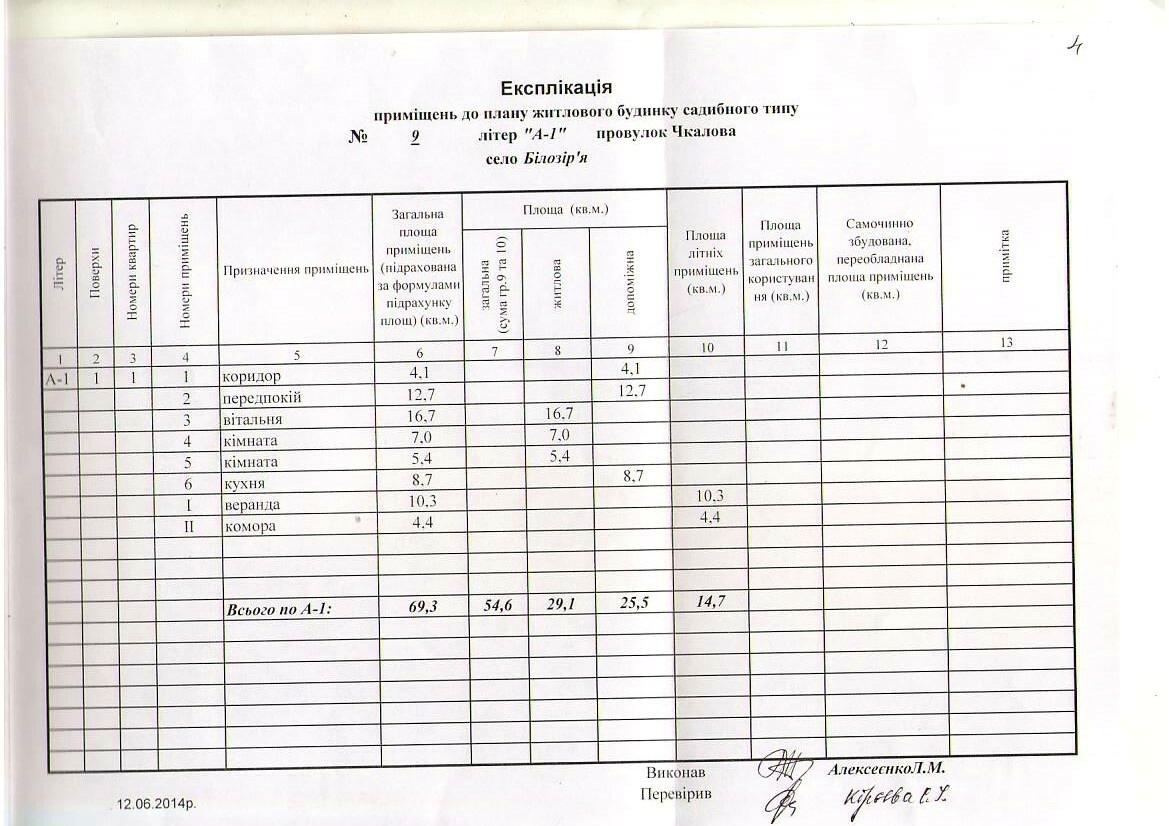 4
Експлікація
приміщень до плану житлового будинку садибного типу
№ 9 літер "А-1" провулок Чкалова
село Білозір'я
Літер Поверхи Номери квартир Номери приміщень Призначення приміщень Загальна площа приміщень (підрахована за формулами підрахунку площ) (кв.м.) Площа (кв.м.) загальна (сума гр.9 та 10) житлова допоміжна Площа літніх приміщень (кв.м.) Площа приміщень загального користуван ня (кв.м.) Самочинно збудована, переобладнана площа приміщень (кв.м.) примітка
1 2 3 4 5 6 7 8 9 10 11 12 13
А-1 1 1 1 коридор 4,1 4,1
2 передпокій 12,7 12,7
3 вітальня 16,7 16,7
4 кімната 7,0 7,0
5 кімната 5,4 5,4
6 кухня 8,7 8,7
I веранда 10,3 10,3
II комора 4,4 4,4
Всього по А-1: 69,3 54,6 29,1 25,5 14,7
Виконав АлексеєнкоЛ.М.
Перевірив
12.06.2014р.